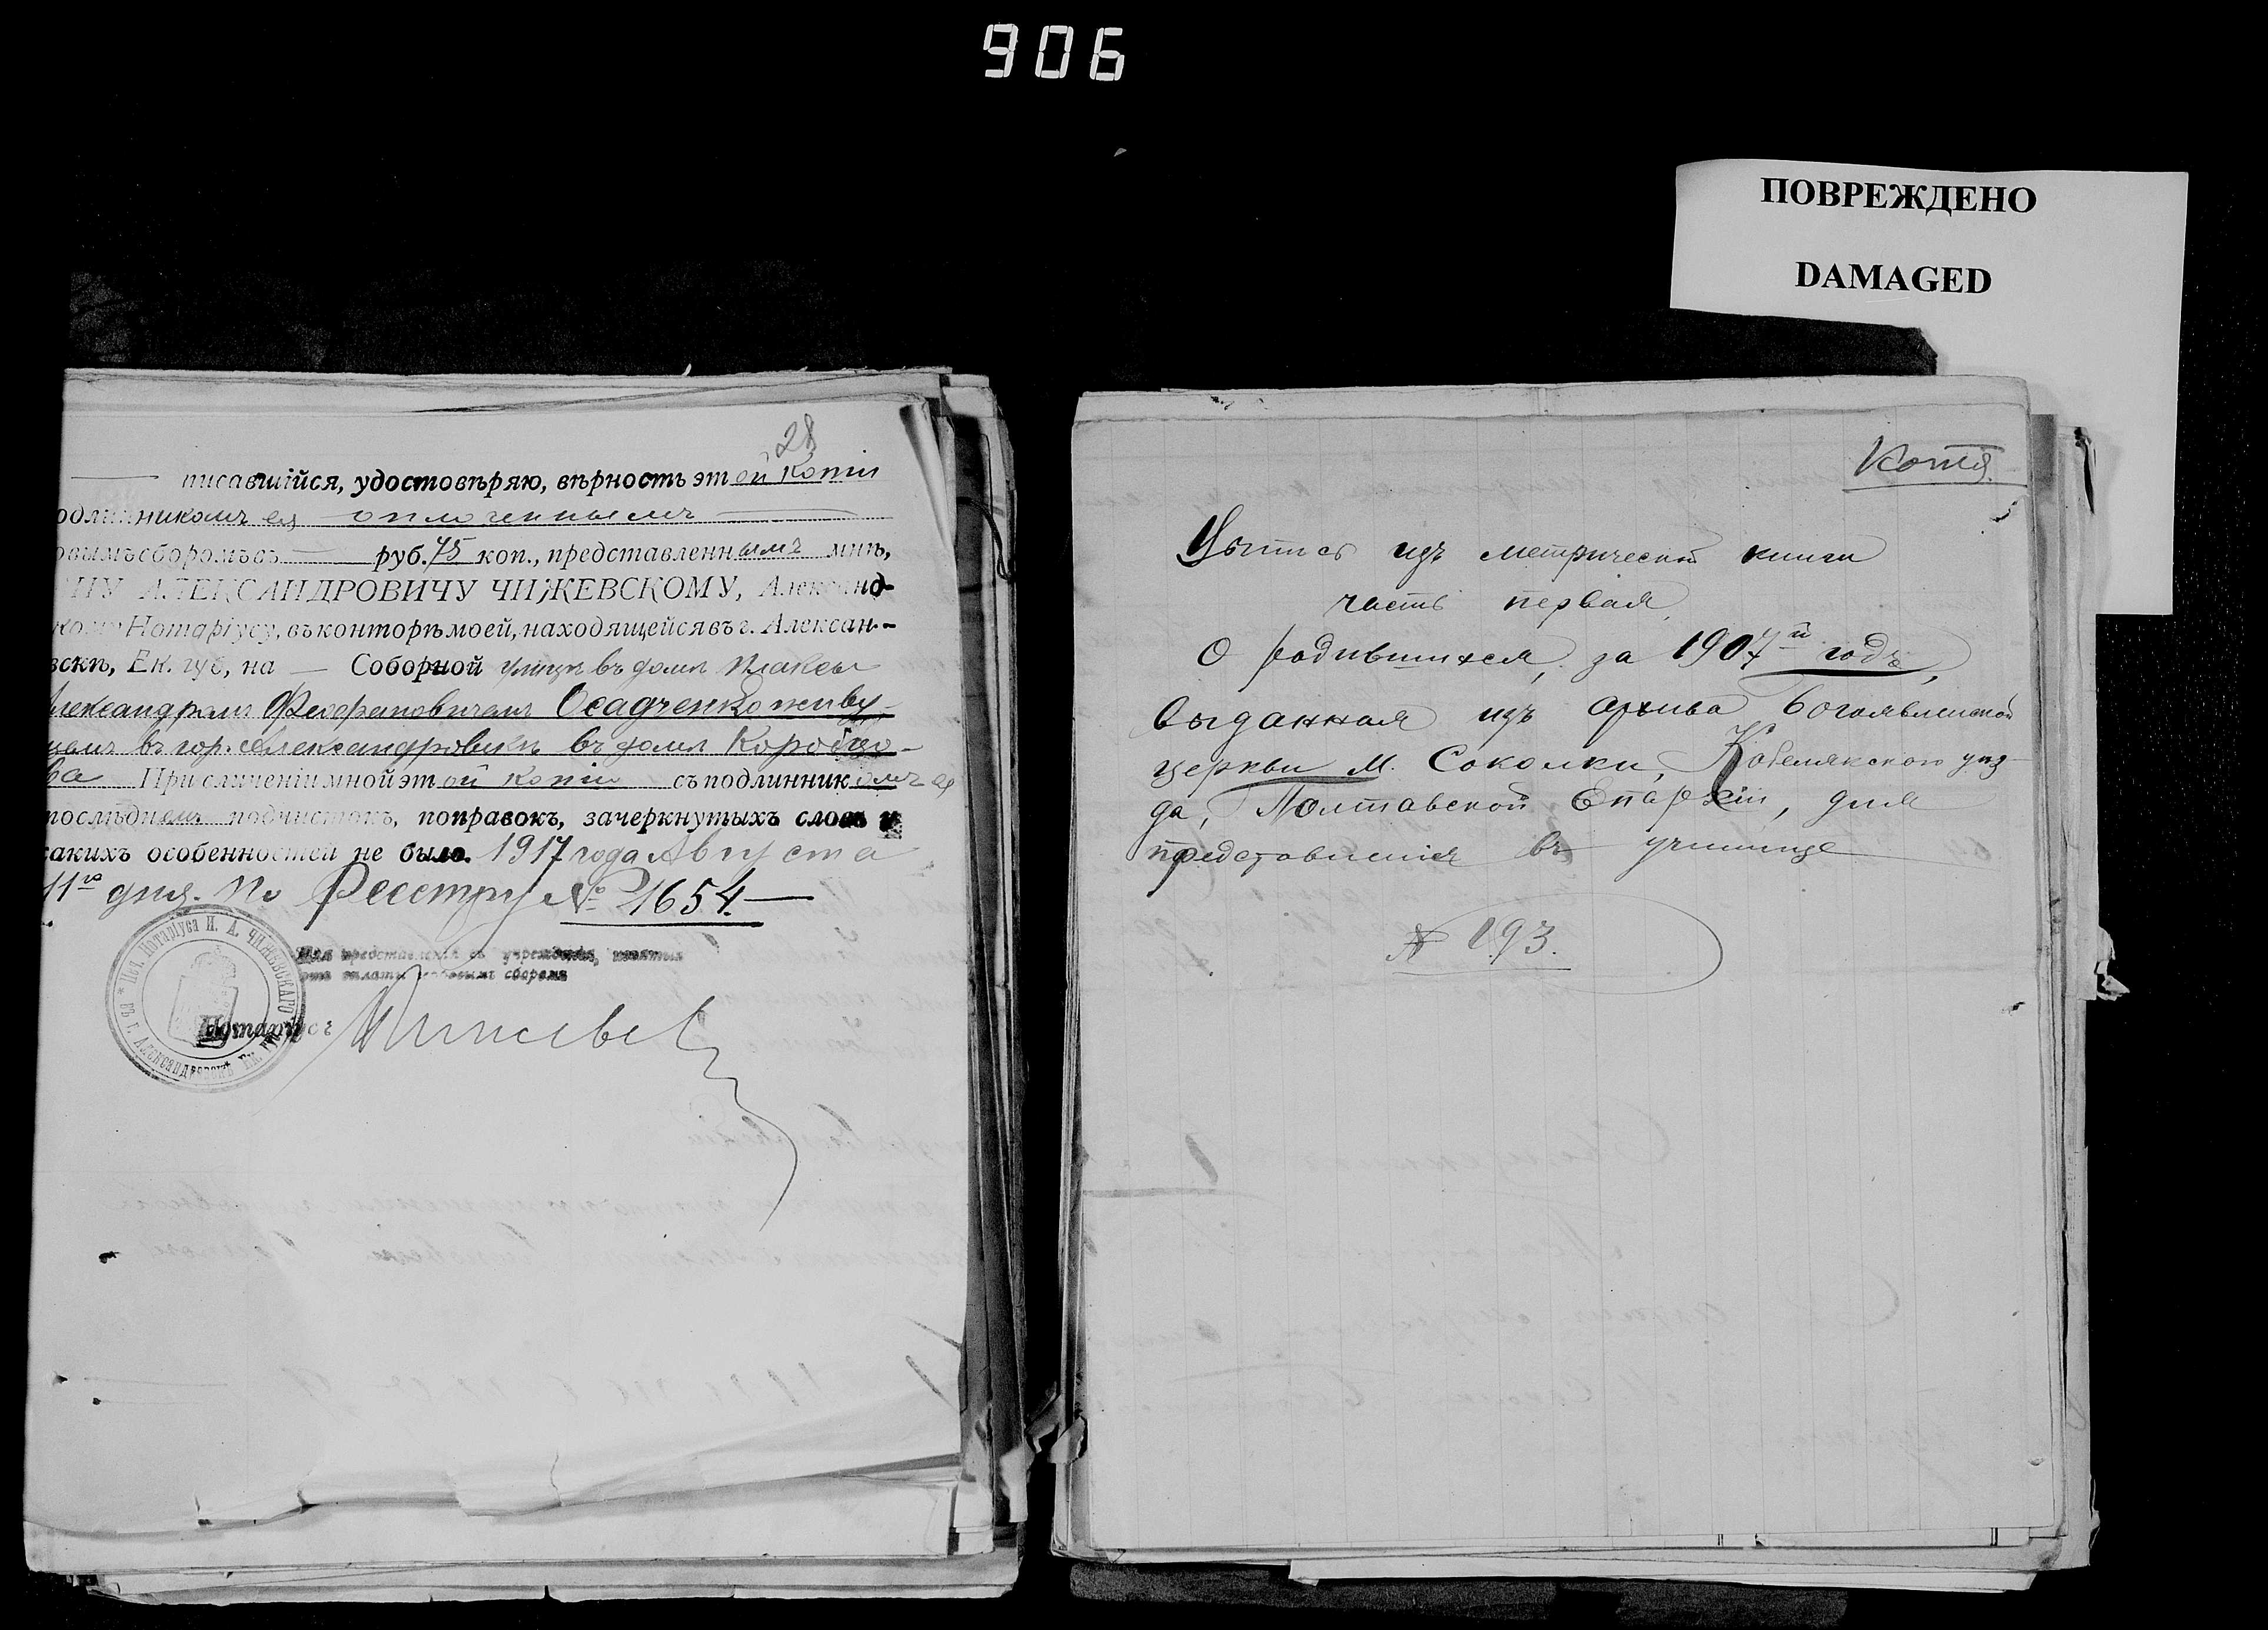 906
ПОВРЕЖДЕНО
DAMAGED
28
писавшійся, удостовѣряю, вѣрность этой копіи
одлинникомъ ея оплоченнымъ
овымъ сборомъ въ — руб. 75 коп., представленнымъ мнѣ,
НУ АЛЕКСАНДРОВИЧУ ЧИЖЕВСКОМУ, Александ-
кому Нотаріусу, въ конторѣ моей, находящейся въ г. Алексан-
вскѣ, Ек. губ, на — Соборной улицѣ въ домѣ
лександромъ Феофановичемъ Осадченко живу-
щемъ въ гор. Александровскѣ въ домѣ Коробцо-
ва При сличеніи мной этой копіи съ подлинникомъ ея
послѣднемъ подчистокъ, поправокъ, зачеркнутыхъ словъ и
акихъ особенностей не было. 1917 года Августа
11го дня. По Реестру № 1654.
Для представленія въ учрежденія,
сборомъ
Нотаріусъ
* Печ. Нотаріуса И. А. Чижевскаго * въ г. Александровскѣ Ек. губ.
Копія
Выпись изъ метрической книги
часть первая
О родившихся, за 1907й годъ,
выданная изъ архива Богоявленской
церкви м. Соколки, Кобелякского уѣз-
да, Полтавской Епархіи, для
представленія въ училище
№ 193.